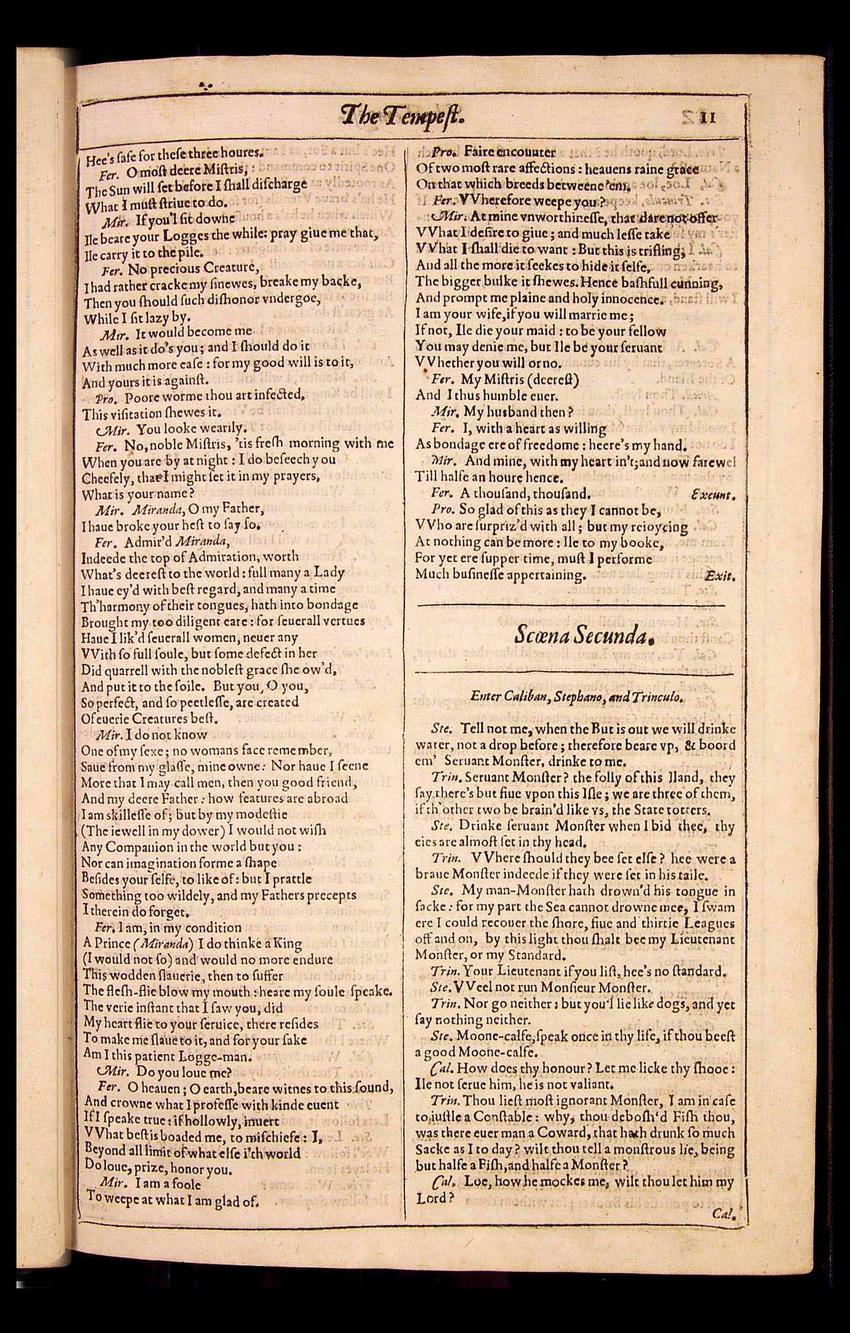 The Tempeſt.
11
Hee's ſafe for theſe three houres.
Fer. O moſt deere Miſtris,
The Sun will ſet before I ſhall diſcharge
What I muſt ſtriue to do.
Mir. If you'l ſit downe
Ile beare your Logges the while: pray giue me that,
Ile carry it to the pile.
Fer. No precious Creature,
I had rather cracke my ſinewes, breake my backe,
Then you ſhould ſuch diſhonor vndergoe,
While I ſit lazy by.
Mir. It would become me
As well as it do's you; and I ſhould do it
With much more eaſe : for my good will is to it,
And yours it is againſt.
Pro. Poore worme thou art infected,
This viſitation ſhewes it.
Mir. You looke wearily.
Fer. No, noble Miſtris, 'tis freſh morning with me
When you are by at night : I do beſeech you
Cheefely, that I might ſet it in my prayers,
What is your name?
Mir. Miranda, O my Father,
I haue broke your heſt to ſay ſo.
Fer. Admir'd Miranda,
Indeede the top of Admiration, worth
What's deereſt to the world : full many a Lady
I haue ey'd with beſt regard, and many a time
Th'harmony of their tongues, hath into bondage
Brought my too diligent eare : for ſeuerall vertues
Haue I lik'd ſeuerall women, neuer any
VVith ſo full ſoule, but ſome defect in her
Did quarrell with the nobleſt grace ſhe ow'd,
And put it to the foile. But you, O you,
So perfect, and ſo peetleſſe, are created
Of euerie Creatures beſt.
Mir. I do not know
One of my ſexe; no womans face remember,
Saue from my glaſſe, mine owne : Nor haue I ſeene
More that I may call men, then you good friend,
And my deere Father : how features are abroad
I am skilleſſe of; but by my modeſtie
(The iewell in my dower) I would not wiſh
Any Companion in the world but you :
Nor can imagination forme a ſhape
Beſides your ſelfe, to like of : but I prattle
Something too wildely, and my Fathers precepts
I therein do forget.
Fer. I am, in my condition
A Prince (Miranda) I do thinke a King
(I would not ſo) and would no more endure
This wodden ſlauerie, then to ſuffer
The fleſh-flie blow my mouth : heare my ſoule ſpeake.
The verie inſtant that I ſaw you, did
My heart flie to your ſeruice, there reſides
To make me ſlaue to it, and for your ſake
Am I this patient Logge-man.
Mir. Do you loue me?
Fer. O heauen; O earth, beare witnes to this ſound,
And crowne what I profeſſe with kinde euent
If I ſpeake true : if hollowly, inuert
VVhat beſt is boaded me, to miſchiefe : I,
Beyond all limit of what elſe i'th world
Do loue, prize, honor you.
Mir. I am a foole
To weepe at what I am glad of.
Pro. Faire encounter
Of two moſt rare affections : heauens raine grace
On that which breeds betweene 'em.
Fer. VVherefore weepe you?
Mir. At mine vnworthineſſe, that dare not offer
VVhat I deſire to giue; and much leſſe take
VVhat I ſhall die to want : But this is trifling,
And all the more it ſeekes to hide it ſelfe,
The bigger bulke it ſhewes. Hence baſhfull cunning,
And prompt me plaine and holy innocence.
I am your wife, if you will marrie me;
If not, Ile die your maid : to be your fellow
You may denie me, but Ile be your ſeruant
VVhether you will or no.
Fer. My Miſtris (deereſt)
And I thus humble euer.
Mir. My husband then?
Fer. I, with a heart as willing
As bondage ere of freedome : heere's my hand.
Mir. And mine, with my heart in't; and now farewel
Till halfe an houre hence.
Fer. A thouſand, thouſand. Exeunt.
Pro. So glad of this as they I cannot be,
VVho are ſurpriz'd with all; but my reioycing
At nothing can be more : Ile to my booke,
For yet ere ſupper time, muſt I performe
Much buſineſſe appertaining. Exit.
Scœna Secunda.
Enter Caliban, Stephano, and Trinculo.
Ste. Tell not me, when the But is out we will drinke
water, not a drop before; therefore beare vp, & boord
em' Seruant Monſter, drinke to me.
Trin. Seruant Monſter? the folly of this Iland, they
ſay there's but fiue vpon this Iſle; we are three of them,
if th'other two be brain'd like vs, the State totters.
Ste. Drinke ſeruant Monſter when I bid thee, thy
eies are almoſt ſet in thy head.
Trin. VVhere ſhould they bee ſet elſe? hee were a
braue Monſter indeede if they were ſet in his taile.
Ste. My man-Monſter hath drown'd his tongue in
ſacke : for my part the Sea cannot drowne mee, I ſwam
ere I could recouer the ſhore, fiue and thirtie Leagues
off and on, by this light thou ſhalt bee my Lieutenant
Monſter, or my Standard.
Trin. Your Lieutenant if you liſt, hee's no ſtandard.
Ste. VVeel not run Monſieur Monſter.
Trin. Nor go neither : but you'l lie like dogs, and yet
ſay nothing neither.
Ste. Moone-calfe, ſpeak once in thy life, if thou beeſt
a good Moone-calfe.
Cal. How does thy honour? Let me licke thy ſhooe :
Ile not ſerue him, he is not valiant.
Trin. Thou lieſt moſt ignorant Monſter, I am in caſe
to iuſtle a Conſtable : why, thou deboſh'd Fiſh thou,
was there euer man a Coward, that hath drunk ſo much
Sacke as I to day? wilt thou tell a monſtrous lie, being
but halfe a Fiſh, and halfe a Monſter?
Cal. Loe, how he mockes me, wilt thou let him my
Lord?
Cal.